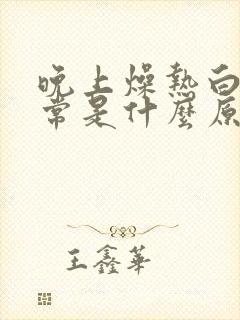 晚上燥熱白
常是什麼原
王鑫華